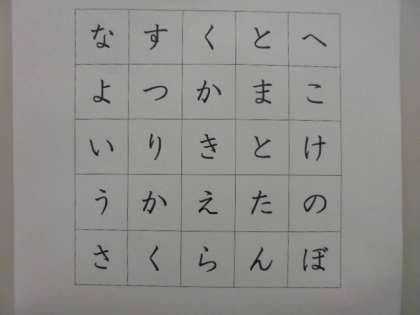 なすくとへ
よつかまこ
いりきとけ
うかえたの
さくらんぼ